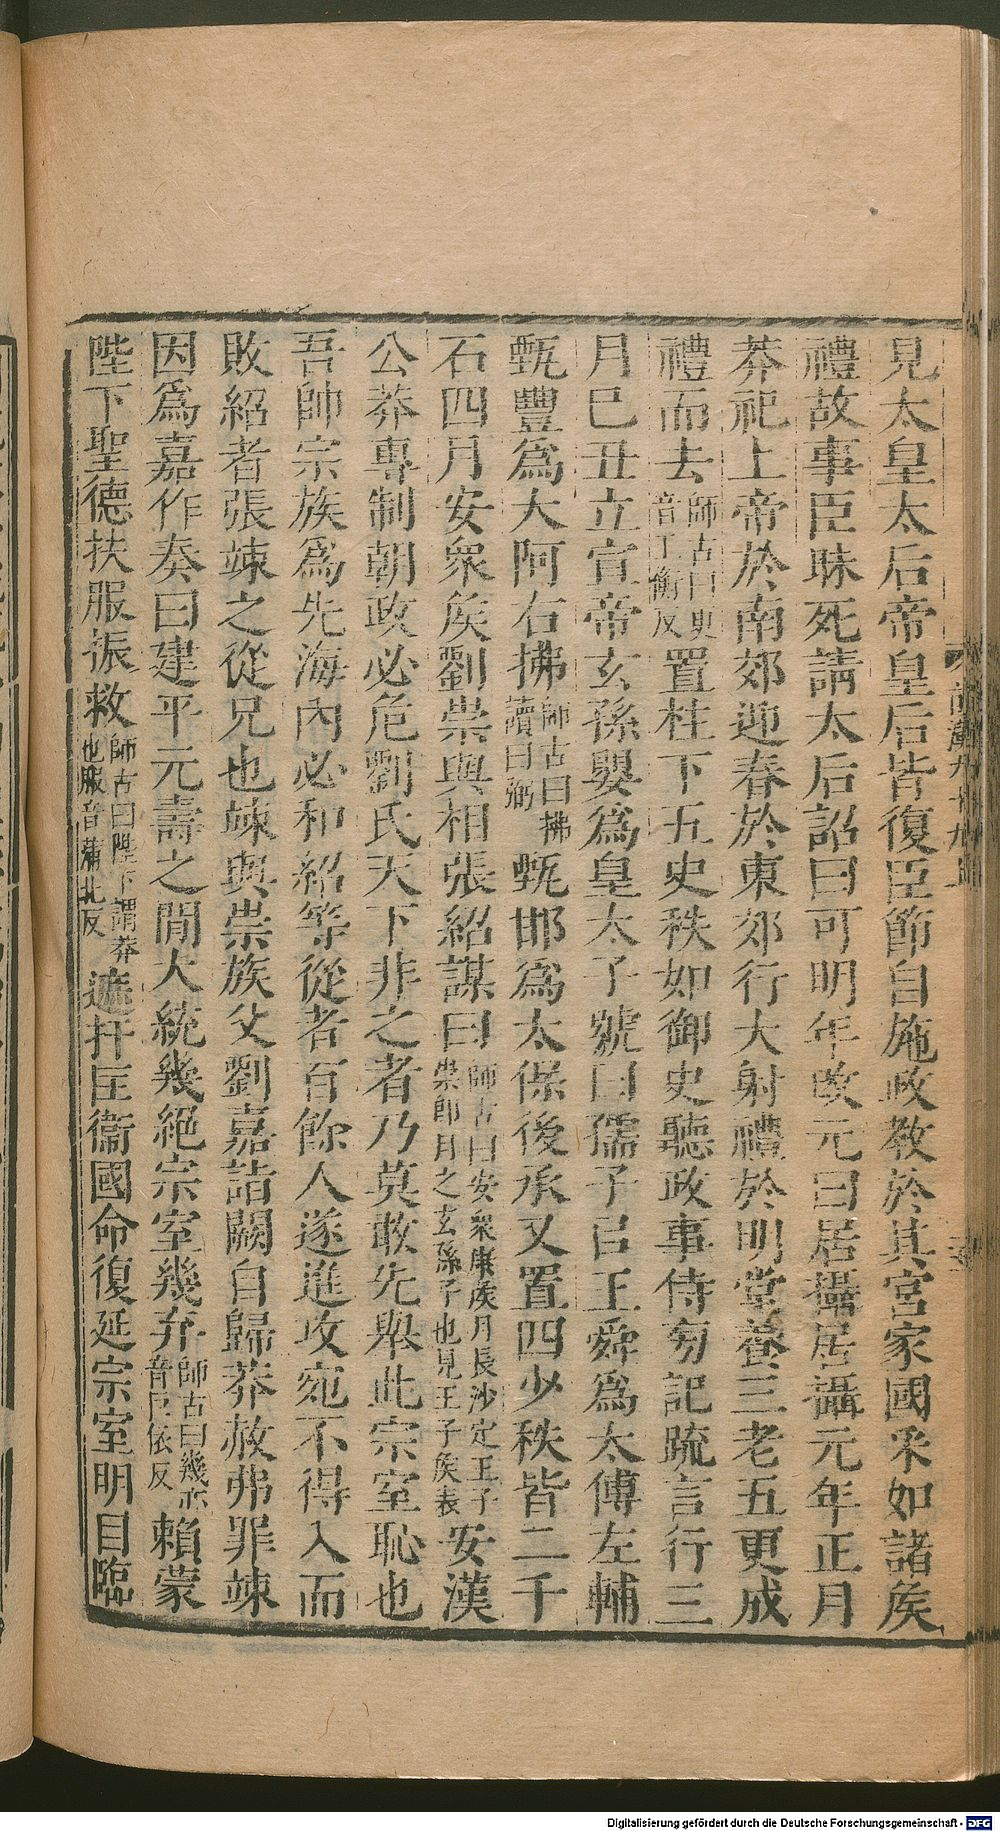 見太皇太后帝皇后皆復臣節自施政教於其宮家國采如諸矦
禮故事臣昧死請太后詔曰可明年改元曰居攝居攝元年正月
莽祀上帝於南郊迎春於東郊行大射禮於明堂養三老五更成
禮而去師古曰更音工衡反置柱下五史秩如御史聽政事侍旁記疏言行三
月己丑立宣帝玄孫嬰爲皇太子號曰孺子㠯王舜爲太傅左輔
甄豐爲大阿右拂師古曰拂讀曰弼甄邯爲太保後承又置四少秩皆二千
石四月安衆矦劉崇與相張紹謀曰師古曰安衆康矦月長沙定王子崇卽月之玄孫子也見王子矦表安漢
公莽專制朝政必危劉氏天下非之者乃莫敢先舉此宗室恥也
吾帥宗族爲先海內必和紹等從者百餘人遂進攻宛不得入而
敗紹者張竦之從兄也竦與崇族父劉嘉詣闕自歸莽赦弗罪竦
因爲嘉作奏曰建平元壽之閒大統幾絕宗室幾弃師古曰幾亦音巨依反賴蒙
陛下聖德扶服振救師古曰陛下謂莽也服音蒲北反遮扞匡衞國命復延宗室明目臨
前漢九十九上
Digitalisierung gefördert durch die Deutsche Forschungsgemeinschaft - DFG